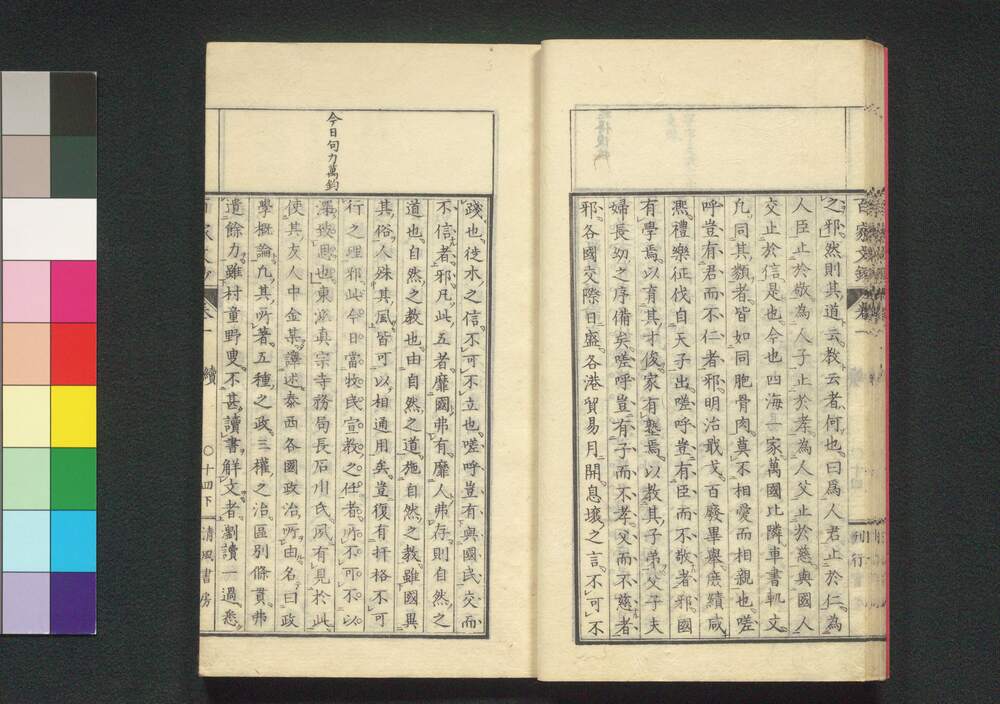 之邪然則其道云教云者何也曰爲人君止於仁為
人臣止於敬為人子止於孝為人父止於慈與國人
交止於信是也今也四海一家萬國比隣車書軌文
凢同其類者皆如同胞骨肉莫不相愛而相親也嗟
呼豈有君而不仁者邪明治戢戈百廢畢舉庶績咸
熈禮樂征伐自天子出嗟呼豈有臣而不敬者邪國
有學焉以育其才俊家有塾焉以教其子弟父子夫
婦長幼之序備矣嗟呼豈有子而不孝父而不慈者
邪各國交際日盛各港貿易月開息壤之言不可不
今日句力萬鈞
踐也徙木之信不可不立也嗟呼豈有與國民交而
不信者邪凡此五者靡國弗有靡人弗存則自然之
道也自然之教也由自然之道施自然之教雖國異
其俗人殊其風皆可以相通用矣豈復有扞格不可
行之理邪此今日當牧民宣教之任者所不可不以
也東派真宗寺務局長石川氏夙有見於此
使其友人中金某譯述泰西各國政治所由名曰政
學概論凢其所著五種之政三權之治區別條貫弗
遺餘力雖村童野叟不甚讀書解文者瀏讀一過悉
卷一 續 〇十四下 清風書房